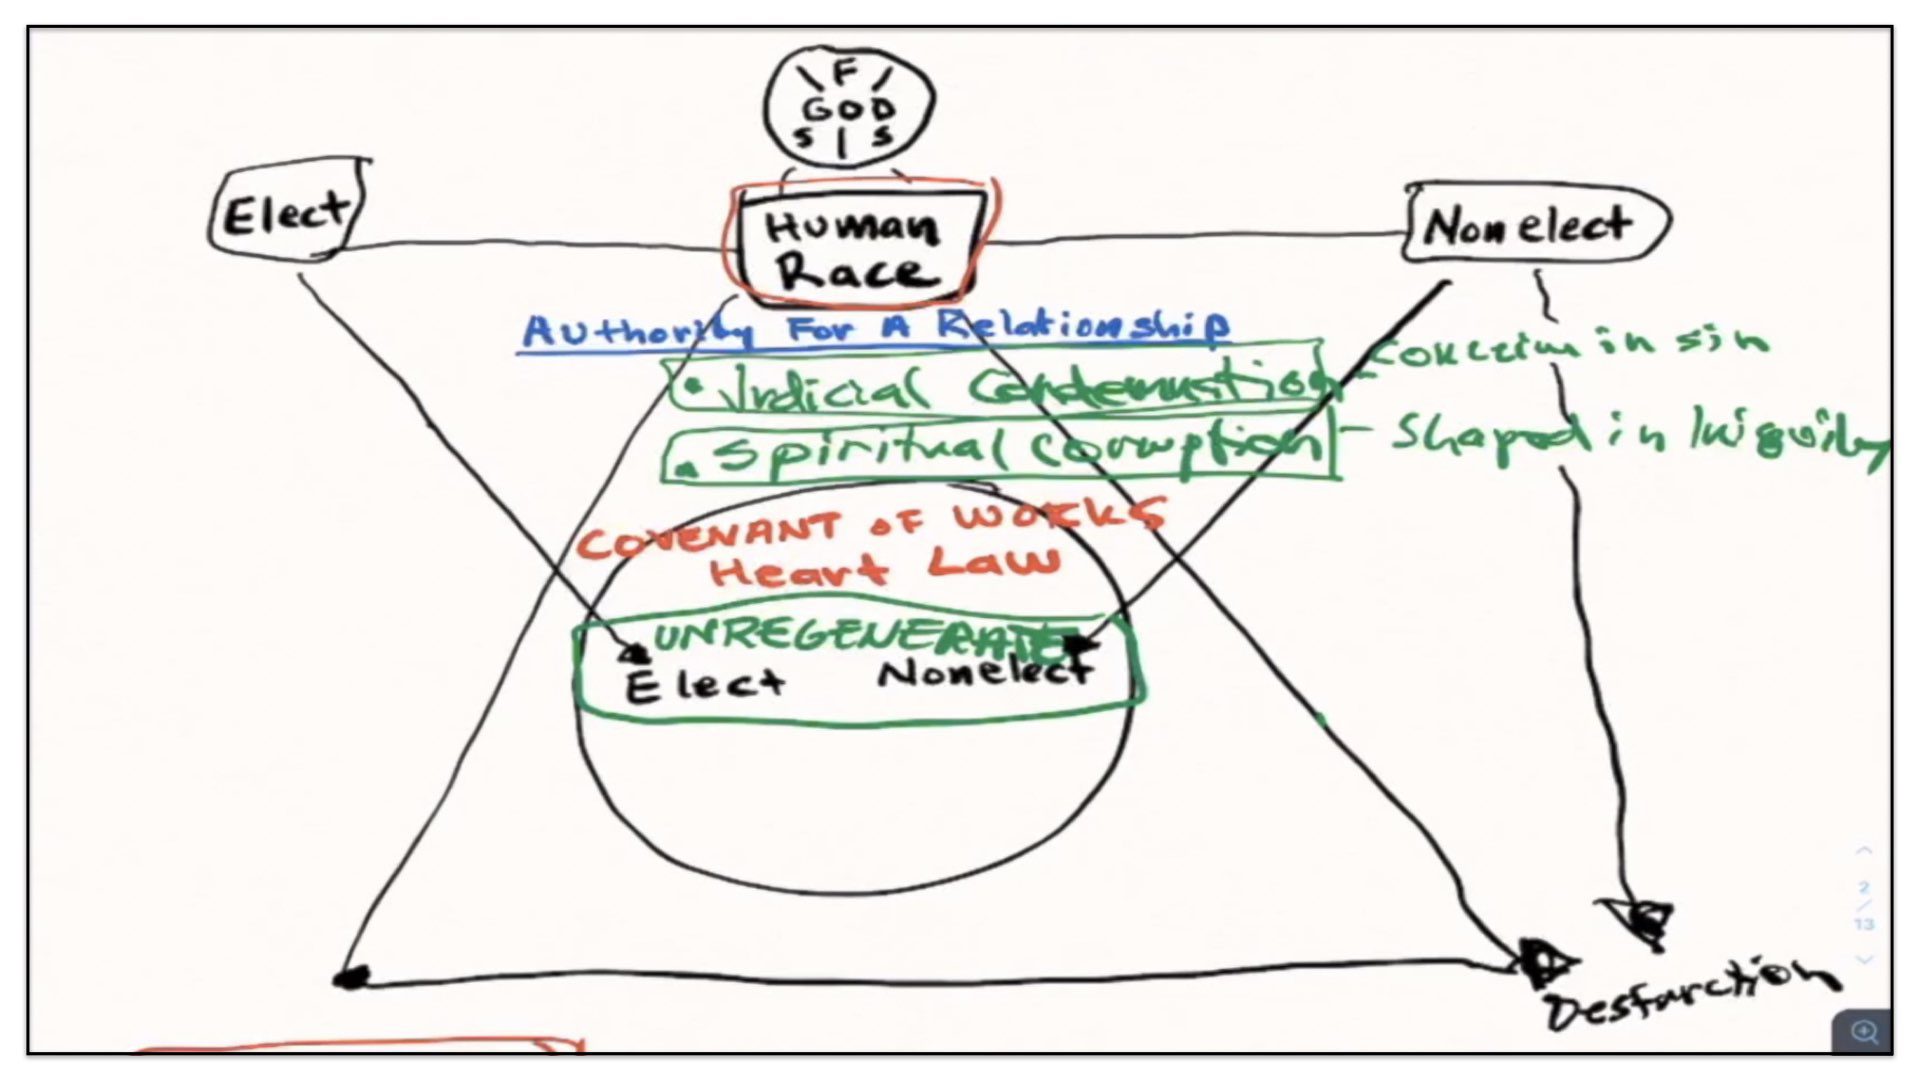 F
GOD
S I S
Elect
Human
Race
Nonelect
Authority For A Relationship
• Judicial Condemnation - in sin
• Spiritual Corruption - Shaped in Iniquity
COVENANT OF WORKS
Heart Law
UNREGENERATE
Elect Nonelect
2
/
13